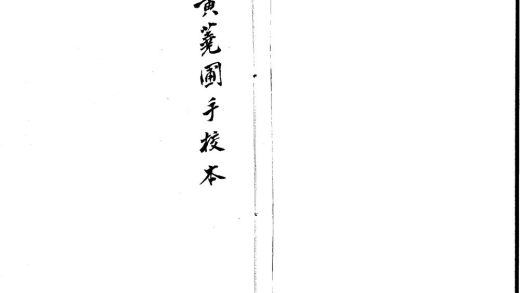 黄蕘圃手校本